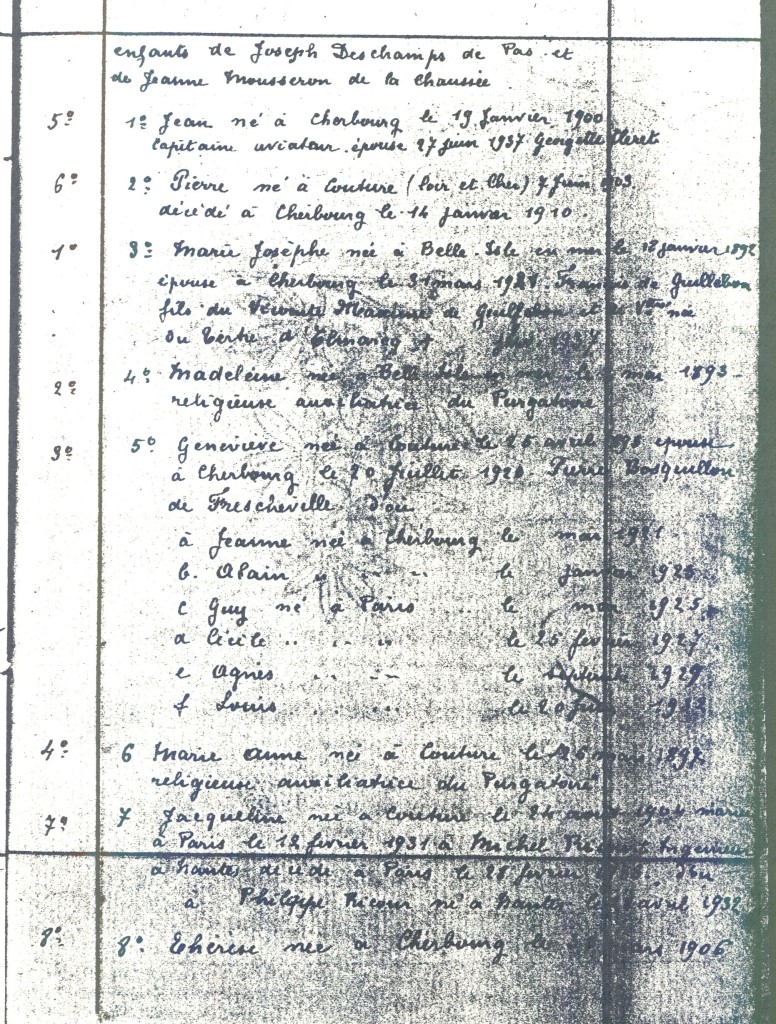 enfants de Joseph Deschamps de Pas et
de Jeanne Mousseron de la Chaussée
5º 1º Jean né à Cherbourg le 19 Janvier 1900
Capitaine aviateur épouse 27 juin 1937 Georgette
6º 2º Pierre né à Couture (Loir et Cher) 7 Juin
décédé à Cherbourg le 14 janvier 1910.
1º 3º Marie Josèphe née à Belle-Isle en mer le 12 janvier 1892
épouse à Cherbourg le 31 mars 1921 François de Guillebon
fils du Vicomte Maxime de Guillebon et de Vtesse née
du Tertre d'Elmarcq
2º 4º Madeleine née à Belle Isle en mer le mai 1893
religieuse auxiliatrice du Purgatoire
3º 5º Geneviève née à Couture le 25 avril épouse
à Cherbourg le 20 Juillet 1920 Pierre Bosquillon
de Frescheville d'où
à Jeanne née à Cherbourg le mai 1921
b. Alain le janvier
c Guy né à Paris .. le mai 1925
d Cécile .. .. .. le 25 février 1927
e Agnès .. .. le septembre 1929
f Louis .. .. le 20
4º 6 Marie Anne née à Couture le mars 1897
religieuse auxiliatrice du Purgatoire
7º 7 Jacqueline née à Couture le 24 août 1904 mariée
à Paris le 12 février 1931 à Michel Ingénieur
à Nantes décédé à Paris le 28 février d'où
à Philippe Ricour né à Nantes le avril 1932
8º 8º Thérèse née à Cherbourg le mars 1906